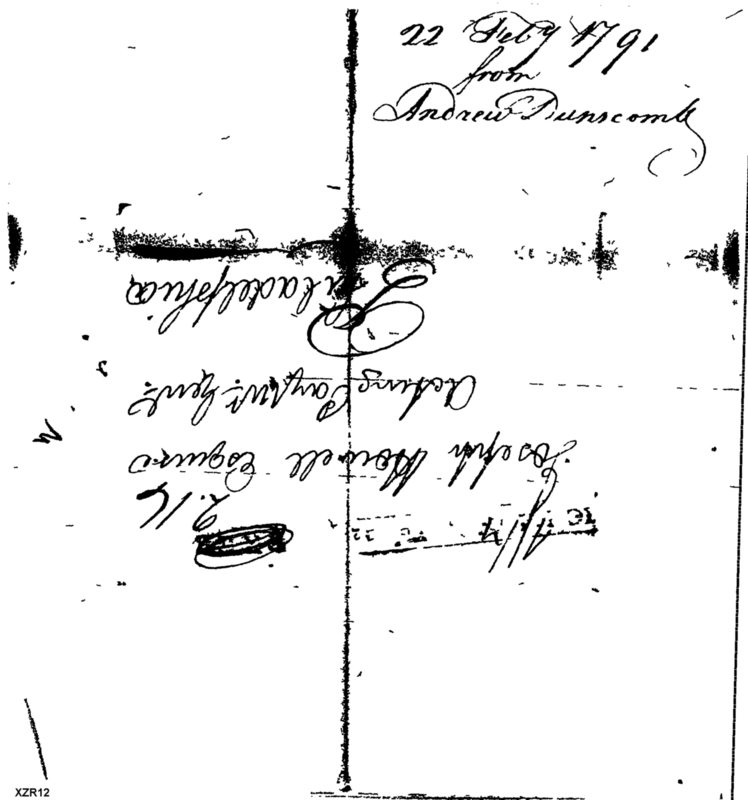 22 Feby 1791
from
Andrew Dunscomb
Joseph Howell Esquire
Acting Pay Mr. Genl.
Philadelphia
XZR12